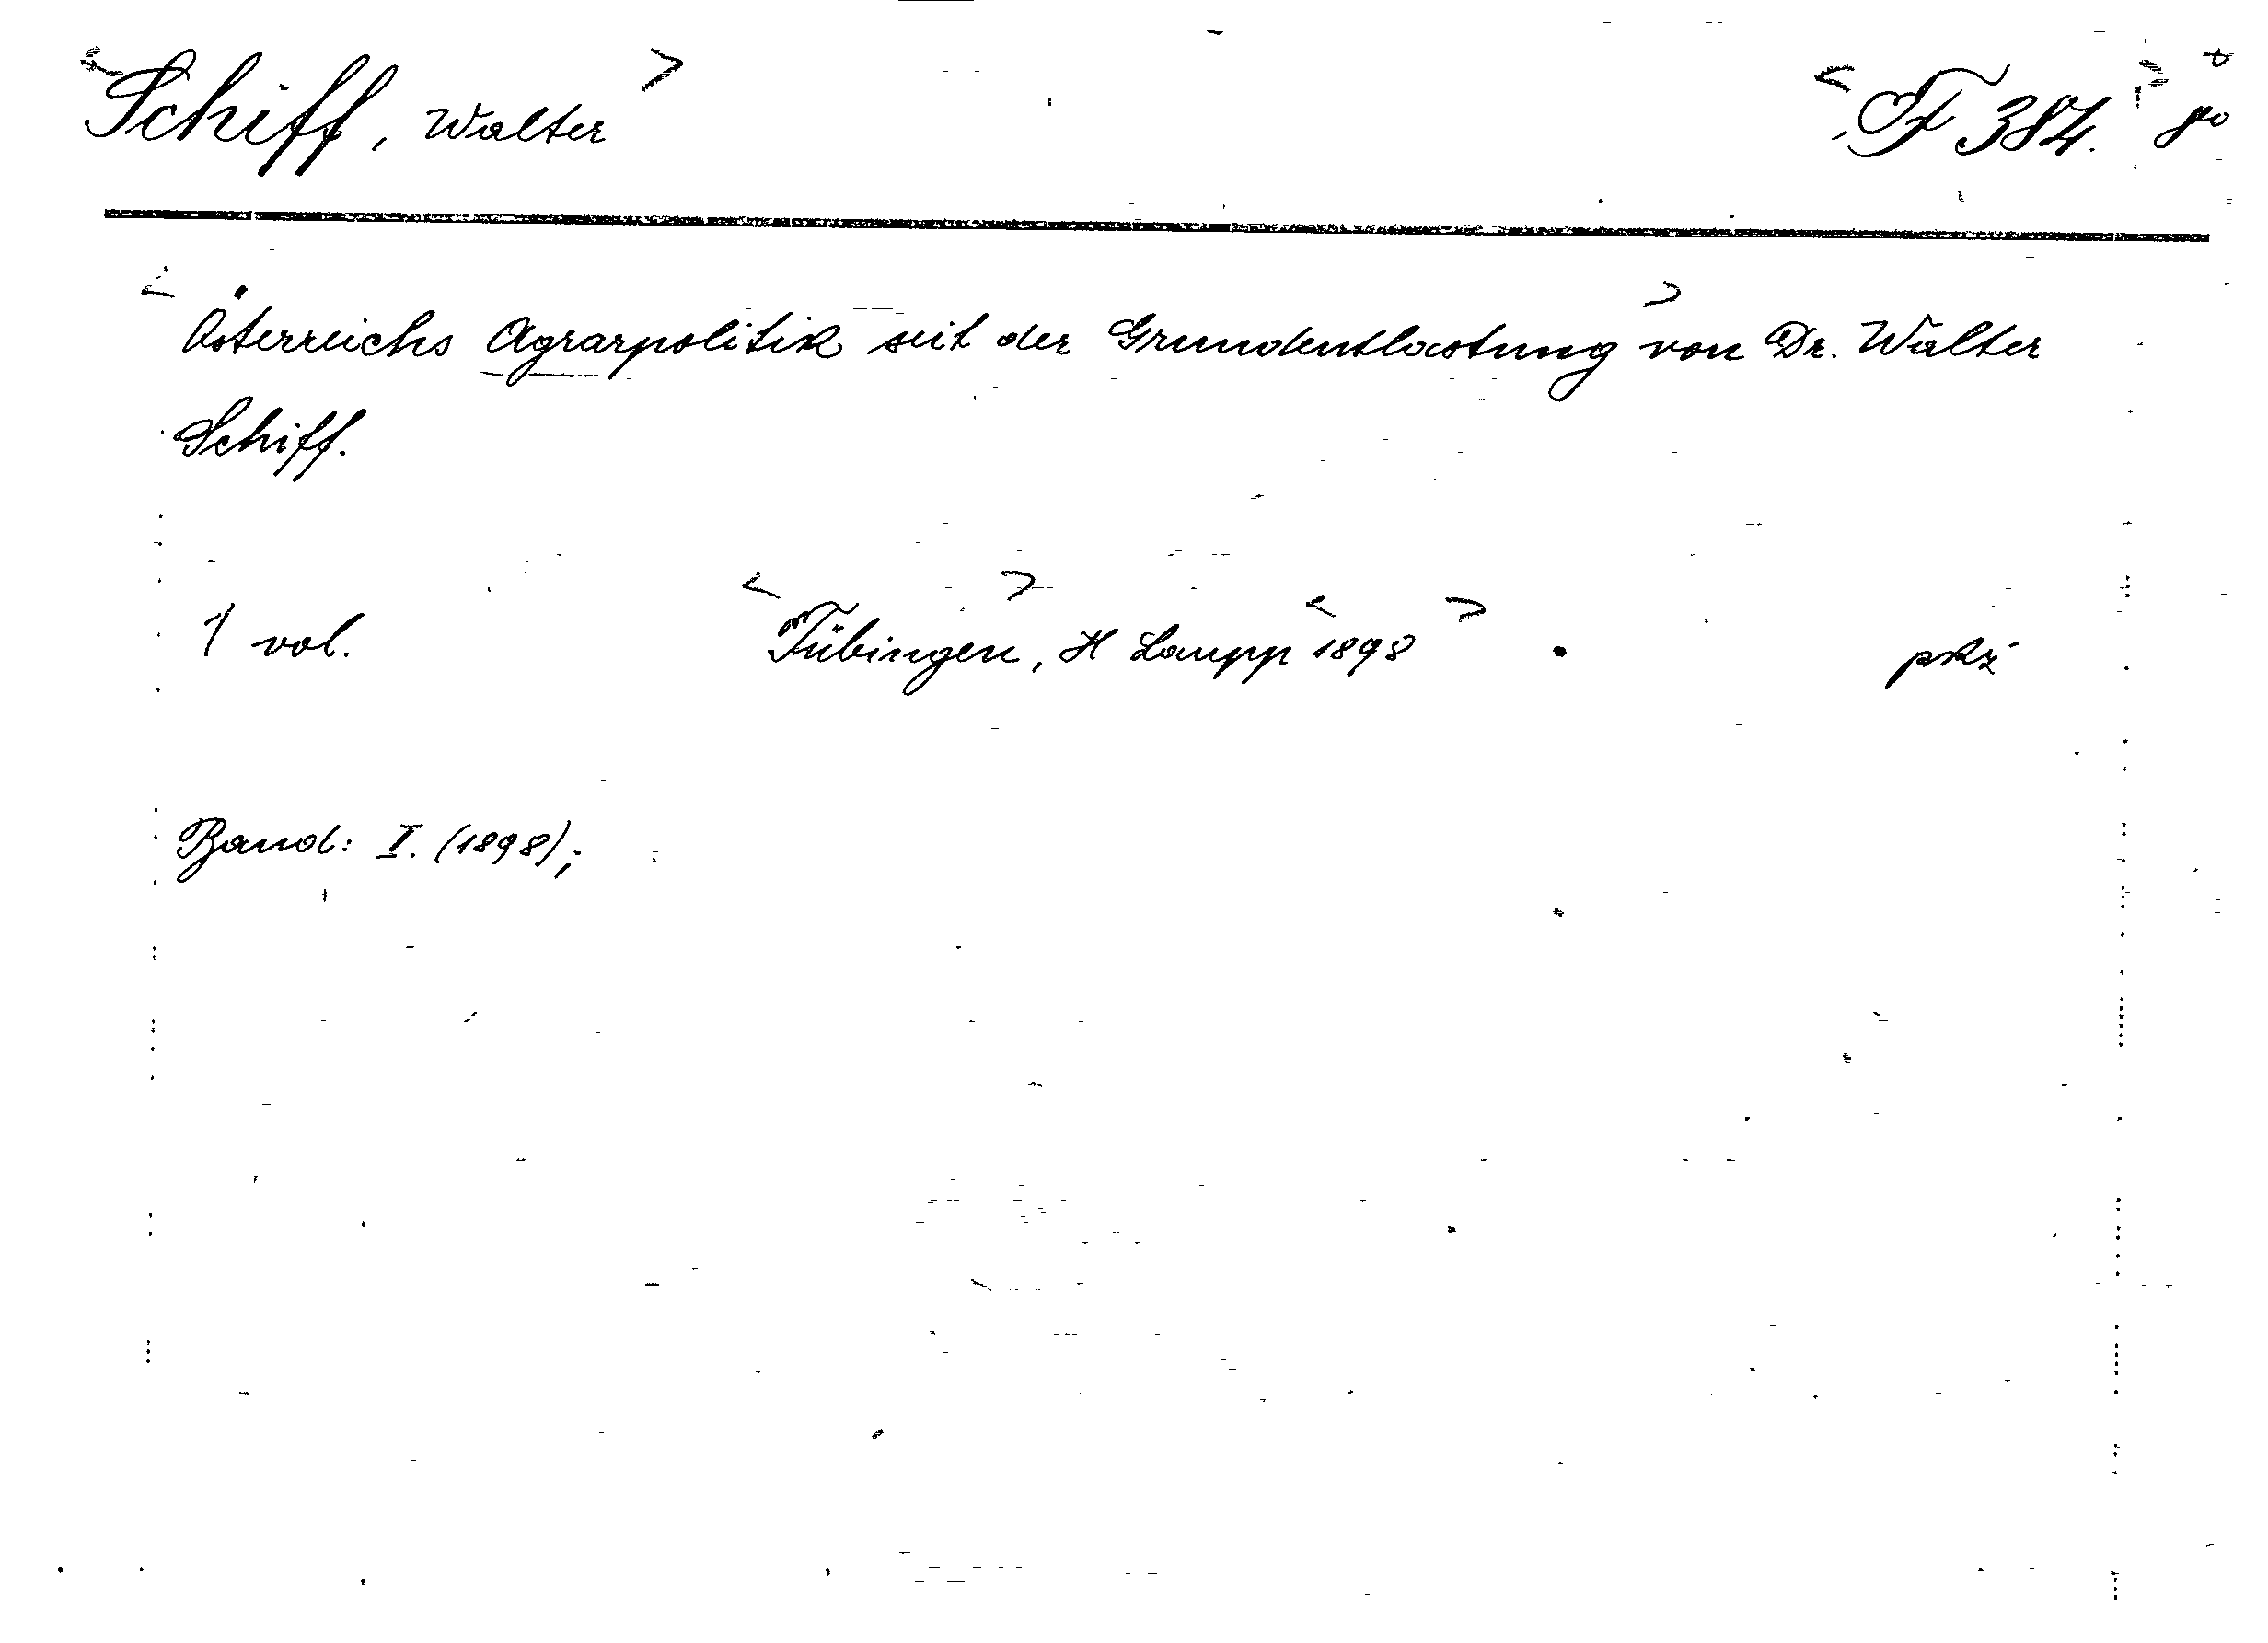 <Schiff, Walter> <F 384.>
<Österreichs Agrarpolitik seit der Grundentlastung> von Dr. Walter
Schiff.
1 vol. <Tübingen>, H Laupp <1898>
Band: I. (1898);